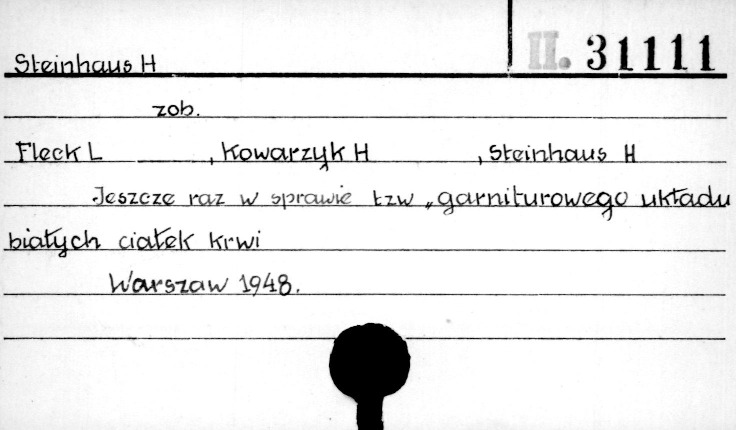 II. 31111
Steinhaus H
zob.
Fleck L , Kowarzyk H , Steinhaus H
Jeszcze raz w sprawie tzw „garniturowego układu
białych ciałek krwi
Warszaw 1948.